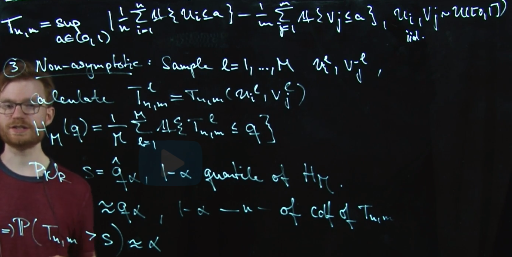 T_{n,m} = sup_{a∈(0,1)} | 1/n Σ_{i=1}^{n} 𝟙{u_i ≤ a} − 1/m Σ_{j=1}^{m} 𝟙{v_j ≤ a} , u_i, v_j ~ U([0,1]) iid.
③ Non-asymptotic: Sample l = 1, ..., M u_i^l, v_j^l ,
Calculate T_{n,m}^l = T_{n,m}(u_i^l, v_j^l)
H_M(q) = 1/M Σ_{l=1}^{M} 𝟙{T_{n,m}^l ≤ q}
Pick s = q̂_α, 1-α quantile of H_M.
≈ q_α , 1-α —u— of cdf of T_{n,m}
=) ℙ(T_{n,m} > s) ≈ α